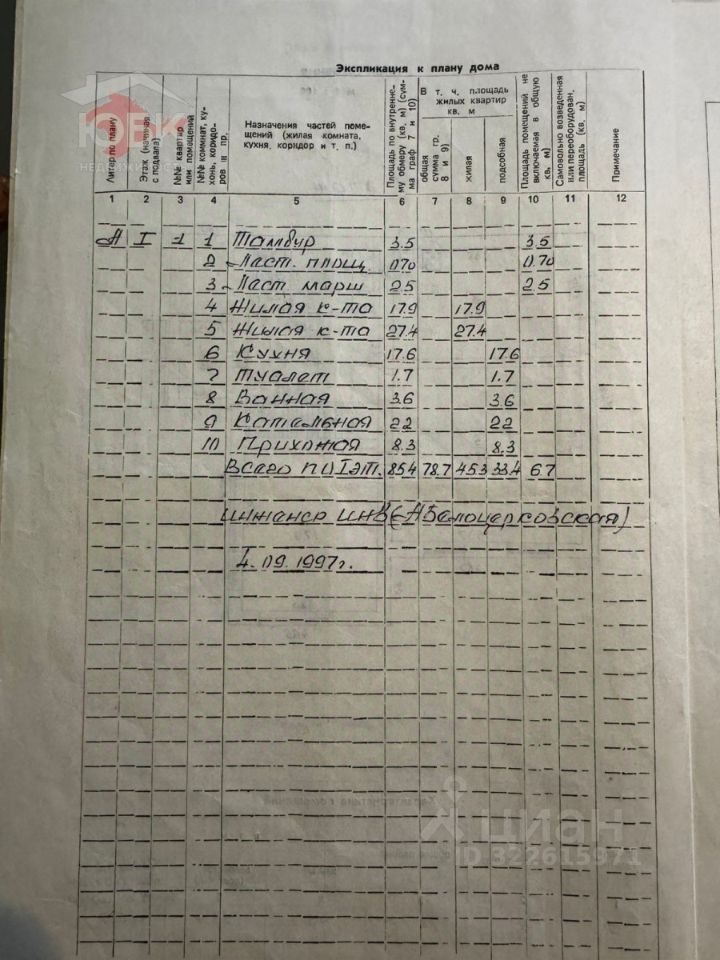 Экспликация к плану дома
Литер по плану
Этаж (начиная с подвала)
№№ квартир или помещений
№№ комнат, кухонь, коридоров и пр.
Назначения частей помещений (жилая комната, кухня, коридор и т. п.)
Площадь по внутреннему обмеру (кв. м) (сумма граф 7 и 10)
В т. ч. площадь жилых квартир кв. м
общая (сумма гр. 8 и 9)
жилая
подсобная
Площадь помещений не включаемая в общую кв. м)
Самовольно возведенная или переоборудован. площадь (кв. м)
Примечание
1 2 3 4 5 6 7 8 9 10 11 12
А I 1 1 Тамбур 3.5 3.5
2 Лест. площ. 0.70 0.70
3 Лест марш 2.5 2.5
4 Жилая к-та 17.9 17.9
5 Жилая к-та 27.4 27.4
6 Кухня 17.6 17.6
7 Туалет 1.7 1.7
8 Ванная 3.6 3.6
9 Котельная 2.2 2.2
10 Прихожая 8.3 8.3
Всего по I эт. 85.4 78.7 45.3 33.4 6.7
Инженер инв (Белоцерковская)
4.09.1997г.
циан
ID 322615971